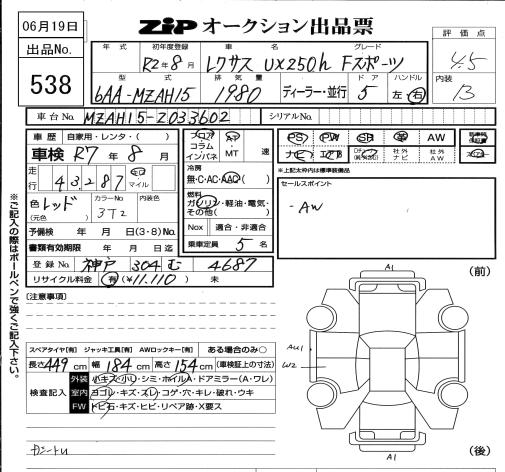 06月19日
ZIP オークション出品票
出品No. 538
評価点 4.5
内装 B
年式 初年度登録 車名 グレード
R2年8月 レクサス UX250h Fスポーツ
型式 排気量 ドア ハンドル
6AA-MZAH15 1980 ディーラー・並行 5 左 右
車台No. MZAH15-2033602 シリアルNo.
車歴 自家用・レンタ・( )
車検 R7年8月
走行 43287 km マイル
色 レッド (元色) カラーNo 3T2 内装色
予備検 年 月 日(3・8)No.
書類有効期限 年 月 日迄
登録No. 神戸 304 む 4687
リサイクル料金 有 (¥11,110) 未
フロア コラム インパネ AT・MT 速
冷房 無・C・AC・AAC
燃料 ガソリン・軽油・電気・その他( )
Nox 適合・非適合
乗車定員 5 名
PS PW SR 革 AW
ナビ エアB 社外ナビ 社外AW
※上記太枠内は標準装備品
セールスポイント
・AW
※ご記入の際はボールペンで強くご記入下さい。
[注意事項]
スペアタイヤ[有] ジャッキ工具[有] AWロックキー[有] ある場合のみ○
長さ 449 cm 幅 184 cm 高さ 154 cm (車検証上の寸法)
検査記入
外装 小キズ・小リ・シミ・ホイルA・ドアミラー(A・ワレ)
室内 ヨゴレ・キズ・スレ・コゲ・穴・キレ・破れ・ウキ
FW トビ石・キズ・ヒビ・リペア跡・X要ス
A1
(前)
AU1
W2
A1
(後)